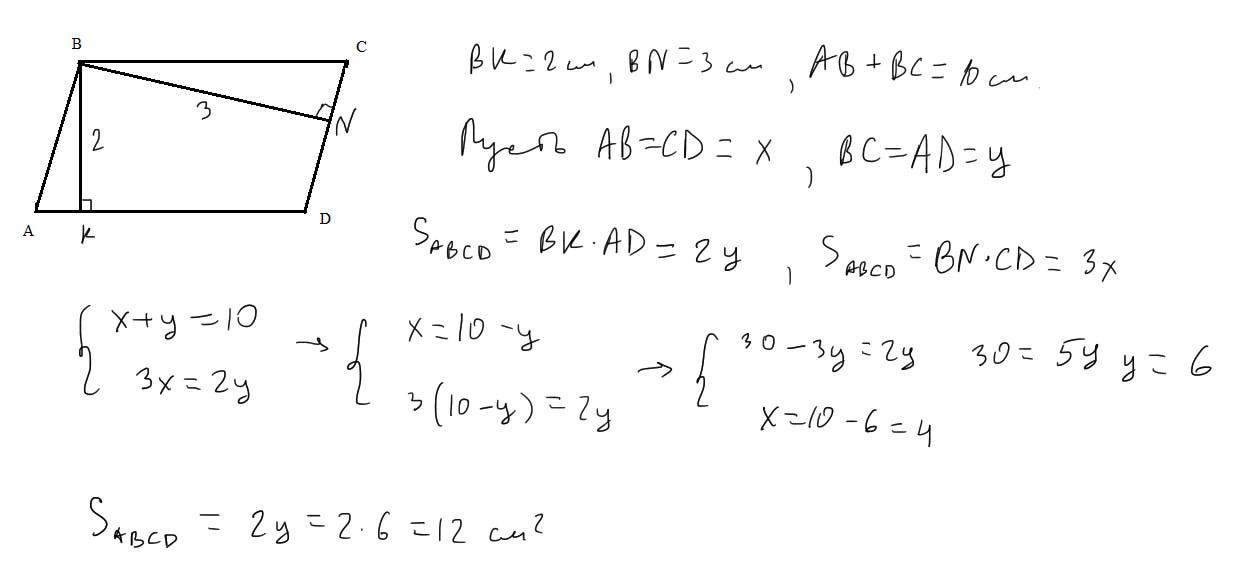 B
C
3
2
N
A
K
D
BK = 2 см, BN = 3 см, AB + BC = 10 см.
Пусть AB = CD = x, BC = AD = y
S_ABCD = BK · AD = 2y, S_ABCD = BN · CD = 3x
{ x + y = 10 → { x = 10 - y → { 30 - 3y = 2y 30 = 5y y = 6
3x = 2y 3(10 - y) = 2y x = 10 - 6 = 4
S_ABCD = 2y = 2 · 6 = 12 см²